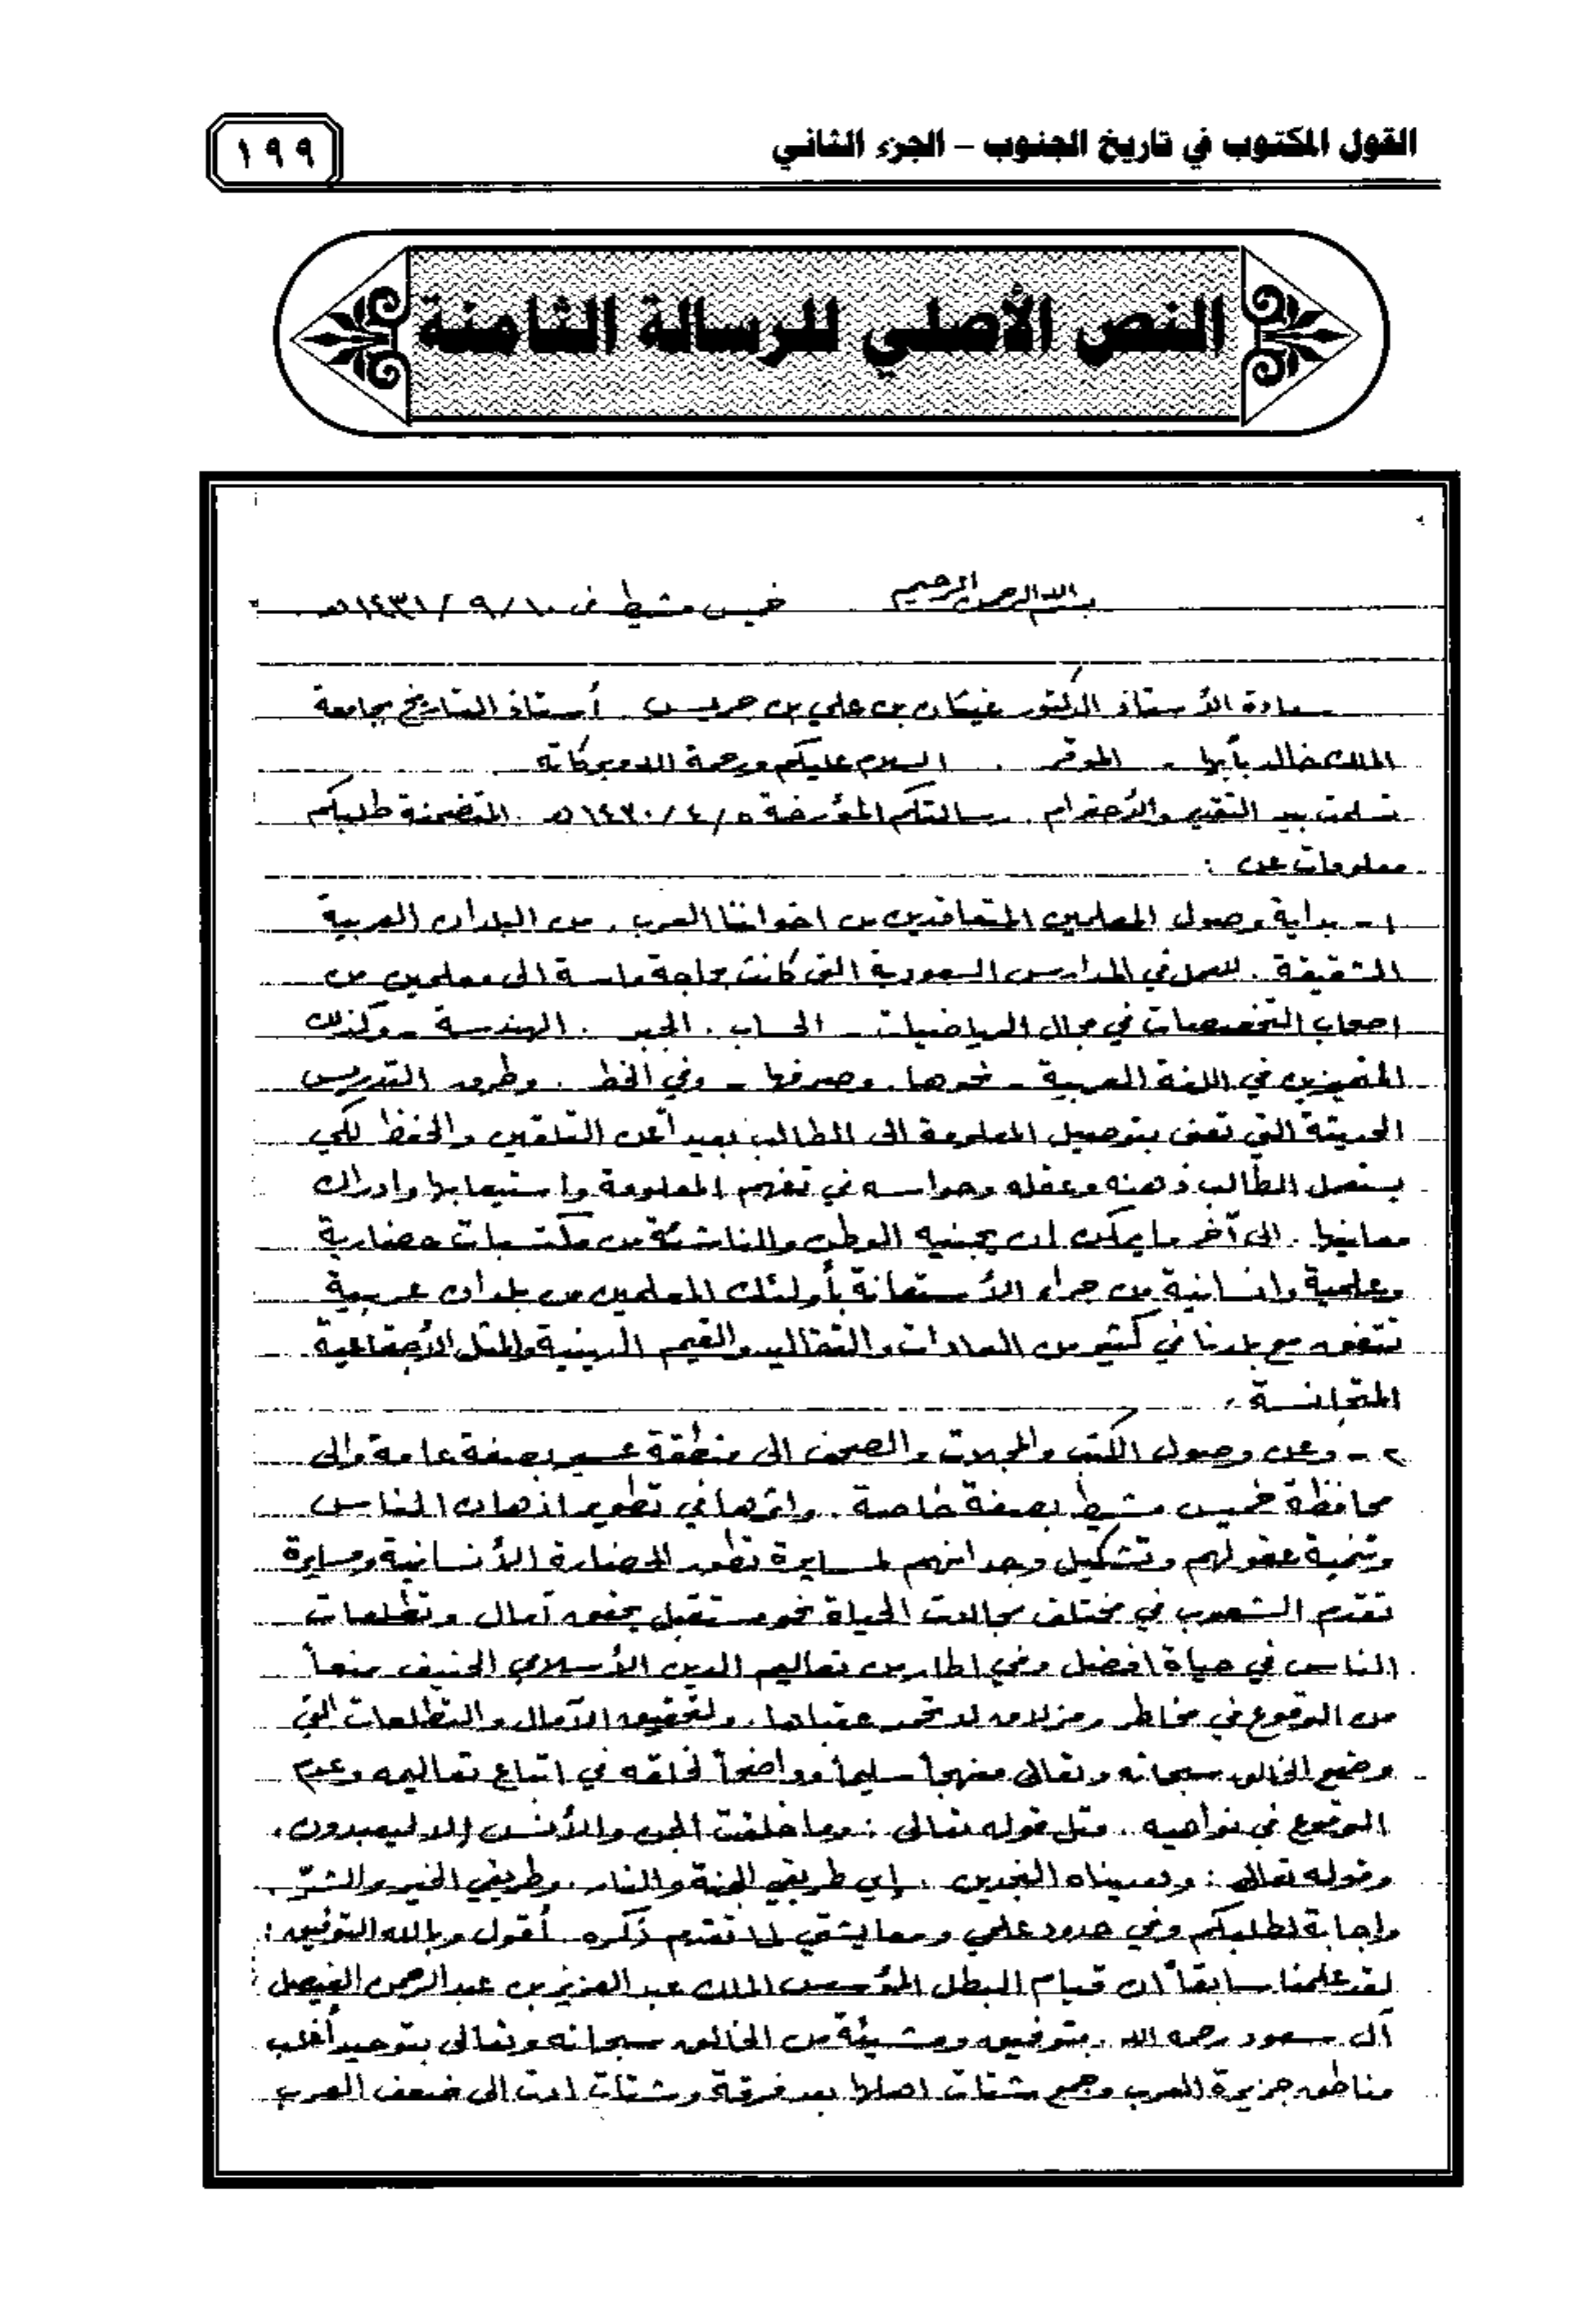 القول المكتوب في تاريخ الجنوب – الجزء الثاني
١٩٩
النص الأصلي للرسالة الثامنة
بسم الله الرحمن الرحيم خميس مشيط في ١٠/٩/١٤٣١هـ
سعادة الأستاذ الدكتور غيثان بن علي بن جريس . أستاذ التاريخ بجامعة
الملك خالد بأبها . الموقر . السلام عليكم ورحمة الله وبركاته
تسلمت بيد التقدير والأحترام . رسالتكم المؤرخة ٥/٤/١٤٣٠هـ . المتضمنة طلبكم
معلومات عن :
١ - بداية وصول المعلمين المتعاقدين من اخواننا العرب . من البلدان العربية
الشقيقة . للعمل في المدارس السعودية التي كانت بحاجة ماسة الى معلمين من
اصحاب التخصصات في مجال الرياضيات - الحساب . الجبر . الهندسة - وكذلك
المتميزين في اللغة العربية - نحوها . وصرفها - وفي الخط . وطرق التدريس
الحديثة التي تعنى بتوصيل المعلومة الى الطالب بعيداً عن التلقين والحفظ لكي
يستعمل الطالب ذهنه وعقله وحواسه في تفهم المعلومة واستيعابها وادراك
معانيها . الى آخر ما يمكن ان يجنيه الوطن والناشئة من مكتسبات حضارية
وعلمية وانسانية من جراء الأستعانة بأولئك المعلمين من بلدان عربية
تتفق مع بلدنا في كثير من العادات والتقاليد والقيم الدينية والمثل الأجتماعية
المتجانسة .
٢ - وعن وصول الكتب والمجلات والصحف الى منطقة عسير بصفة عامة والى
محافظة خميس مشيط بصفة خاصة . واثرها في تطوير اذهان الناس
وتنمية عقولهم وتشكيل وجدانهم لمسايرة تطور الحضارة الأنسانية ومسايرة
تقدم الشعوب في مختلف مجالات الحياة نحو مستقبل يحقق آمال وتطلعات
الناس في حياة افضل وفي اطار من تعاليم الدين الأسلامي الحنيف منعاً
من الوقوع في مخاطر ومزالق لا تحمد عقباها . ولتحقيق الآمال والتطلعات التي
وضع الخالق سبحانه وتعالى منهجاً سليماً وواضحاً لخلقه في اتباع تعاليمه وعدم
الوقوع في نواهيه . مثل قوله تعالى : وما خلقت الجن والأنس إلا ليعبدون .
وقوله تعالى : وهديناه النجدين . إي طريقي الجنة والنار . وطريقي الخير والشرّ .
وإجابة لطلبكم وفي حدود علمي ومعايشتي لما تقدم ذكره . أقول وبالله التوفيق :
لقد علمنا سابقاً ان قيام البطل المؤسس الملك عبد العزيز بن عبد الرحمن الفيصل
آل سعود رحمه الله . بتوفيق ومشيئة من الخالق سبحانه وتعالى بتوحيد أغلب
مناطق جزيرة العرب وجمع شتات اهلها بعد فرقة وشتات ادت الى ضعف العرب